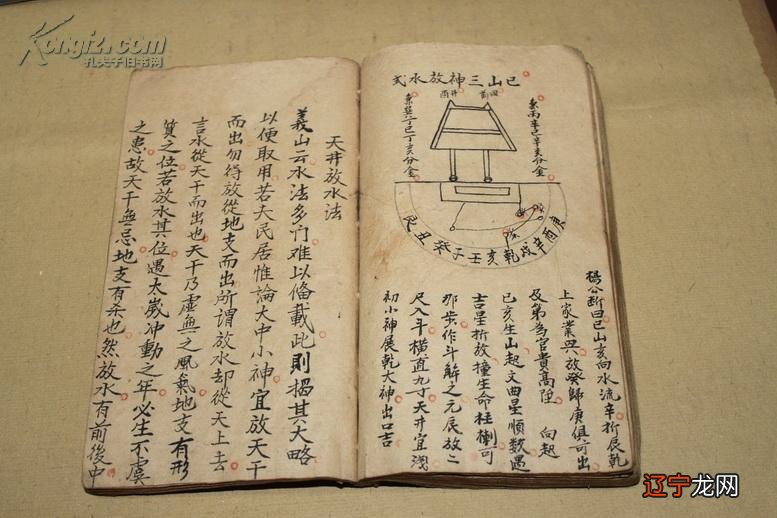 巳山三神放水式
兼丙辛巳辛亥分金
兼巽丁巳丁亥分金
庚酉辛戌乾亥壬子癸丑艮
楊公断曰巳山亥向水流辛折辰乾
上家業興放癸歸庚俱可出
及第为官貴高陞 向起
巳亥生山起文曲星順数遇
吉星折放撞生命枉可
那步作斗觧之元辰放二
尺入斗橫道九寸天井宜浅
初小神辰乾大神出口吉
天井放水法
義山云水法多门难以俻載此則揭其大略
以便取用若夫民居惟論大中小神宜放天干
而出勿得放從地支而出所謂放水却從天上去
言水從天干而出也天干乃虛無之風氣地支有形
質之位若放水其位遇太歲冲動之年必生不虞
之患故天干無忌地支有杀也然放水有前後中
Kongfz.com
孔夫子旧书网
辽宁龙网